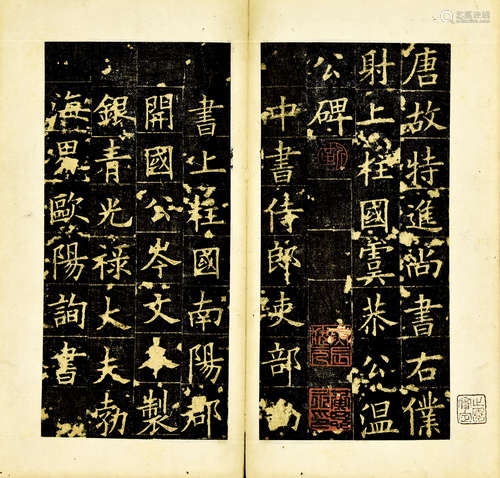 唐故特進尚書右僕
射上柱國虞恭公温
公碑
中書侍郎
書上柱國南陽郡
開國公岑文本製
銀青光祿大夫勃
海男歐陽詢書